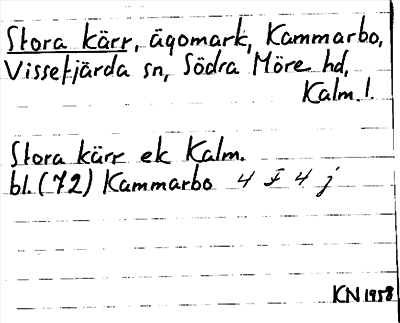 Stora kärr, ägomark, Kammarbo,
Vissefjärda sn, Södra Möre hd,
Kalm. l.
Stora kärr ek Kalm.
bl. (72) Kammarbo 4 F 4 j
KN 1958